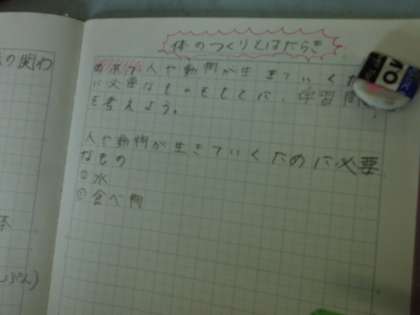 の関わ
体のつくりとはたらき
めあて 人や動物が生きていくた
に必要なものをもとに、学習問
を考えよう。
人や動物が生きていくために必要
なもの
①水
②食べ物